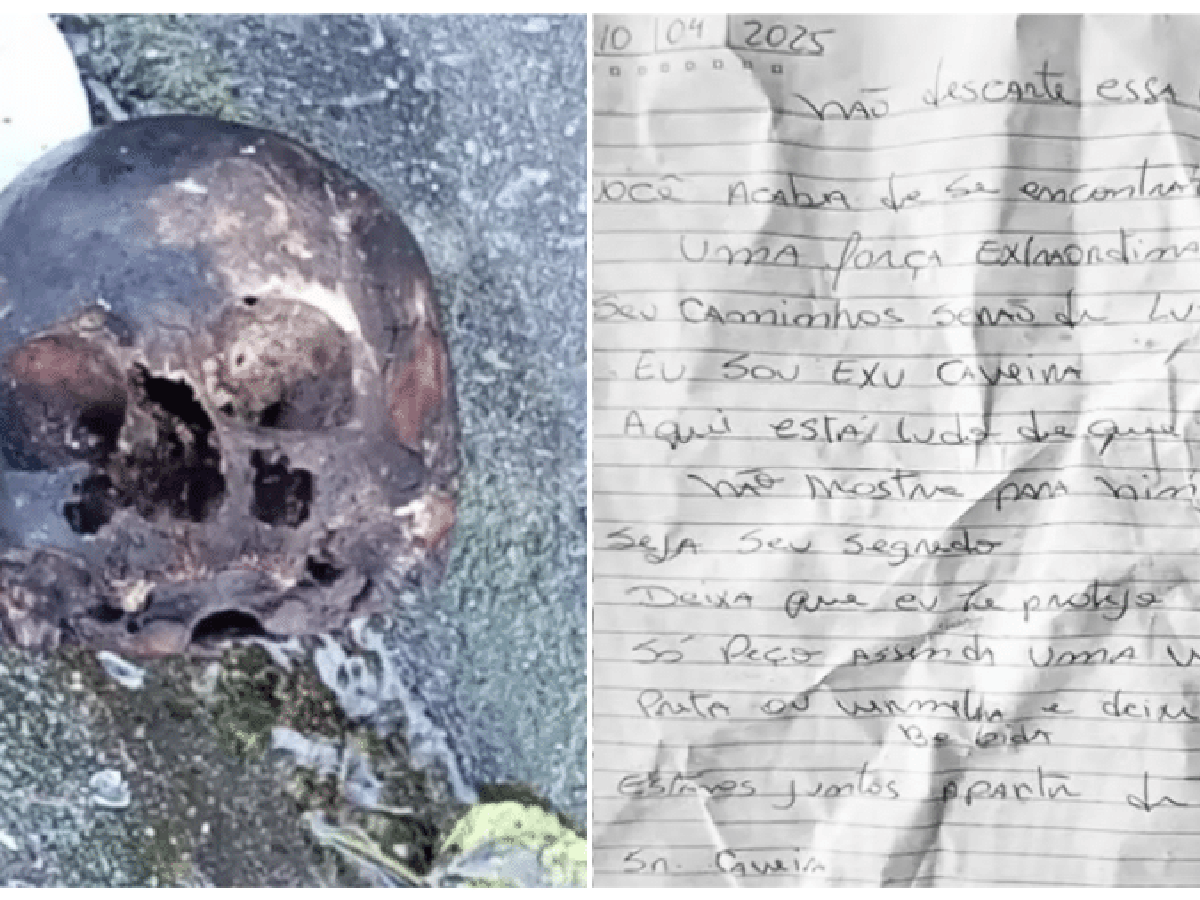 10 04 2025
Não descarte essa
Você Acaba de se encontrar
Uma força Extraordina
Seu Caminhos serão de Lu
Eu Sou Exu Caveira
Aqui está tudo de que
Não Mostre para nin
Seja Seu segredo
Deixa que eu te proteje
Só Peço Assenda uma v
Preta ou vermelha e deixe
Bebida
Estares juntos aparti de
Sr. Caveira